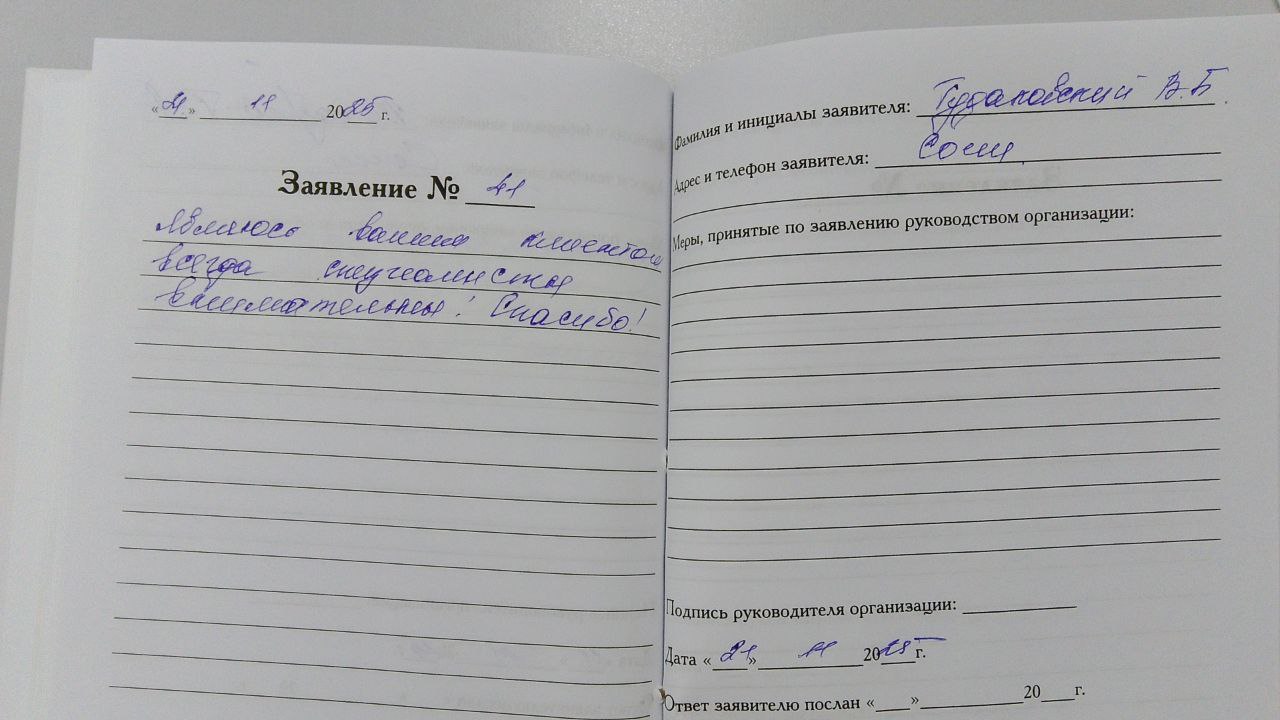 «21» 11 2025 г.
Заявление № 41
Являюсь вашим клиентом
всегда специалисты
внимательны! Спасибо!
Фамилия и инициалы заявителя: Гудаковский В.Б.
Адрес и телефон заявителя: Сочи
Меры, принятые по заявлению руководством организации:
Подпись руководителя организации:
Дата «21» 11 2025 г.
Ответ заявителю послан «  » 20 г.